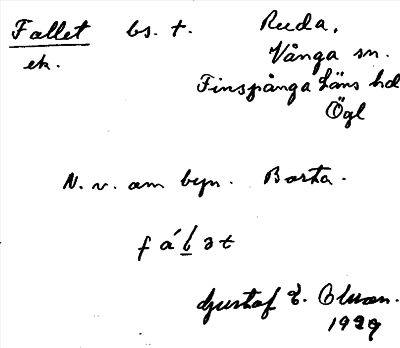 Fallet bs. t. Ruda,
ek. Vånga sn.
Finspånga läns hd
Ögl
N. v. om byn. Borta.
Gustaf E. Olson.
1929